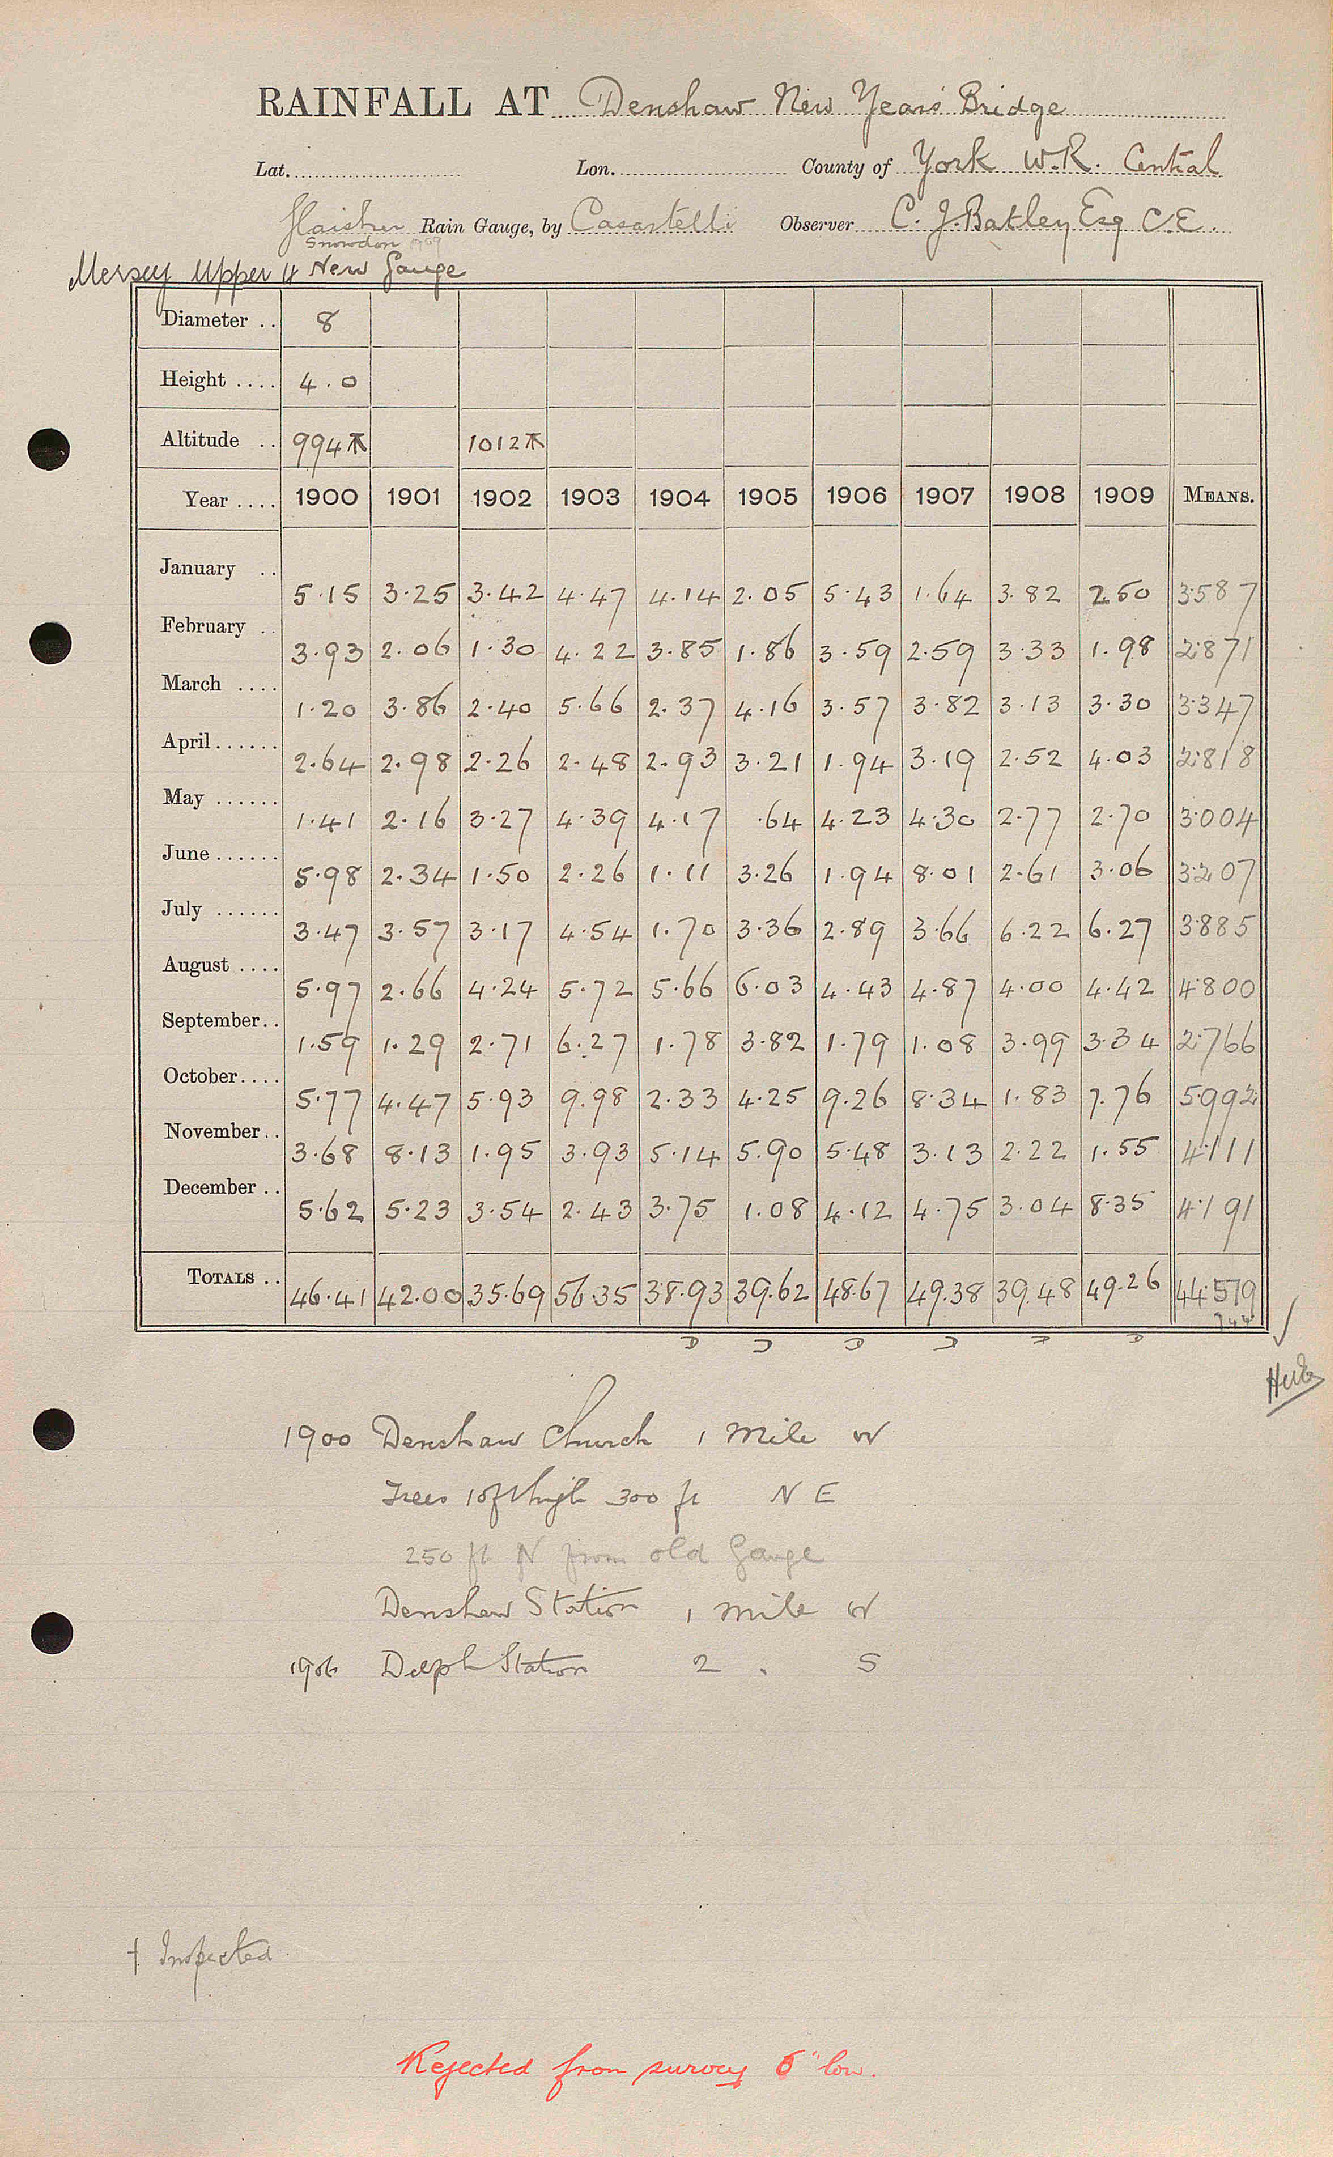 RAINFALL AT Denshaw New Years' Bridge
Lat. Lon. County of York W.R. Central
Glaisher Rain Gauge, by Casartelli Observer C. J. Batley Esq C.E.
Snowdon 1909
Mersey Upper New Gauge
Diameter .. 8
Height .... 4.0
Altitude .. 994 1012
Year .... 1900 1901 1902 1903 1904 1905 1906 1907 1908 1909 MEANS.
January .. 5.15 3.25 3.42 4.47 4.14 2.05 5.43 1.64 3.82 2.50 3.587
February .. 3.93 2.06 1.30 4.22 3.85 1.86 3.59 2.59 3.33 1.98 2.871
March .... 1.20 3.86 2.40 5.66 2.37 4.16 3.57 3.82 3.13 3.30 3.347
April...... 2.64 2.98 2.26 2.48 2.93 3.21 1.94 3.19 2.52 4.03 2.818
May ...... 1.41 2.16 3.27 4.39 4.17 .64 4.23 4.30 2.77 2.70 3.004
June...... 5.98 2.34 1.50 2.26 1.11 3.26 1.94 8.01 2.61 3.06 3.207
July ...... 3.47 3.57 3.17 4.54 1.70 3.36 2.89 3.66 6.22 6.27 3.885
August .... 5.97 2.66 4.24 5.72 5.66 6.03 4.43 4.87 4.00 4.42 4.800
September.. 1.59 1.29 2.71 6.27 1.78 3.82 1.79 1.08 3.99 3.34 2.766
October.... 5.77 4.47 5.93 9.98 2.33 4.25 9.26 8.34 1.83 7.76 5.992
November.. 3.68 8.13 1.95 3.93 5.14 5.90 5.48 3.13 2.22 1.55 4.111
December .. 5.62 5.23 3.54 2.43 3.75 1.08 4.12 4.75 3.04 8.35 4.191
TOTALS .. 46.41 42.00 35.69 56.35 38.93 39.62 48.67 49.38 39.48 49.26 44.579
1900 Denshaw Church 1 mile W
Trees 10ft high 300 ft N E
250 ft N from old Gauge
Denshaw Station 1 mile W
1906 Delph Station 2 " S
† Inspected
Rejected from survey 6" low.